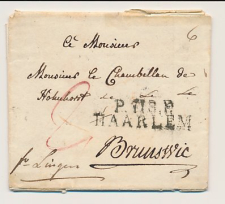 à Monsieur
6
Monsieur Le Chambellan de
Hohnhorst
P.118.P
HAARLEM
Brunswic
pr Lingen